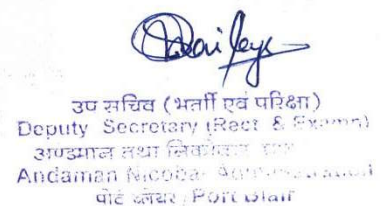 उप सचिव (भर्ती एवं परिक्षा)
Deputy Secretary (Rect & Examn)
अण्डमान तथा निकोबार
Andaman Nicobar Administration
पोर्ट ब्लेयर / Port Blair